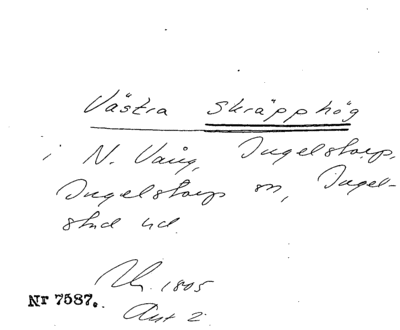 Västra Skräpphög
i N. Vång, Ingelstorp,
Ingelstorps sn, Ingel-
stad hd.
1805
Nr 7587.
Akt 2